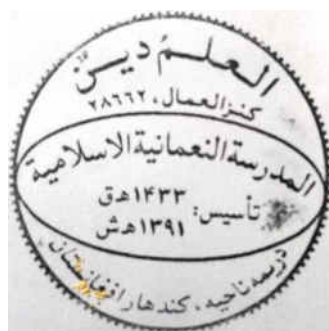 العلم دين
كنز العمال، ٢٨٦٦٢
المدرسة النعمانية الاسلامية
تأسیس: ۱۴۳۳ هـ ق
۱۳۹۱ هـ ش
دريمه ناحيه، كندهار افغانستان